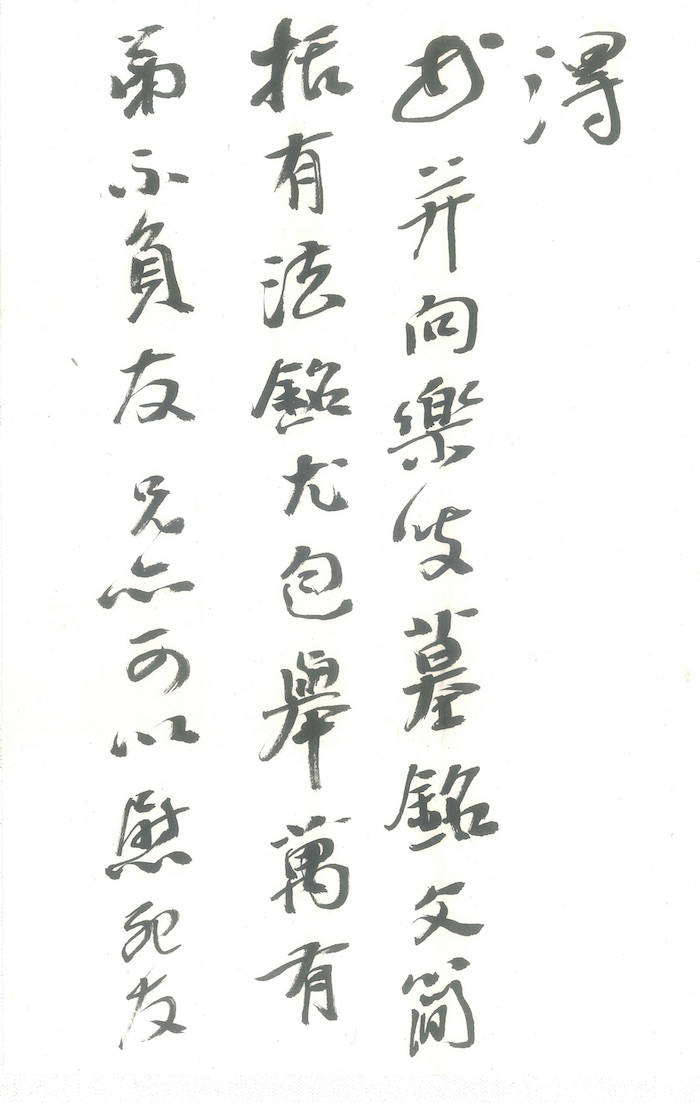 得
書並向樂谷墓銘文簡
括有法銘尤包舉萬有
弟不負友兄亦可以慰死友